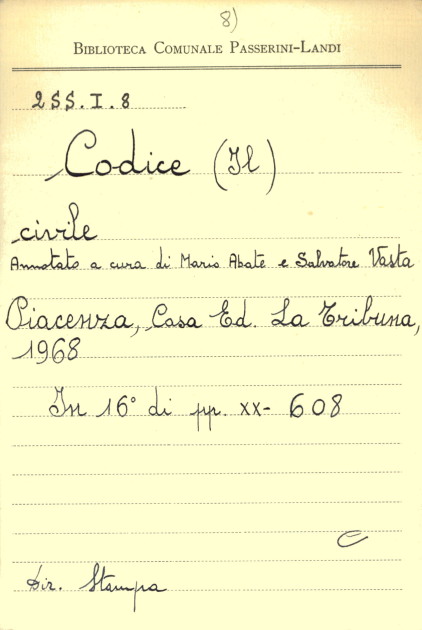 8)
BIBLIOTECA COMUNALE PASSERINI-LANDI
2SS.I.8
Codice (Il)
civile
Annotato a cura di Mario Abate e Salvatore Vasta
Piacenza, Casa Ed. La Tribuna,
1968
In 16° di pp. xx- 608
C
Dir. Stampa